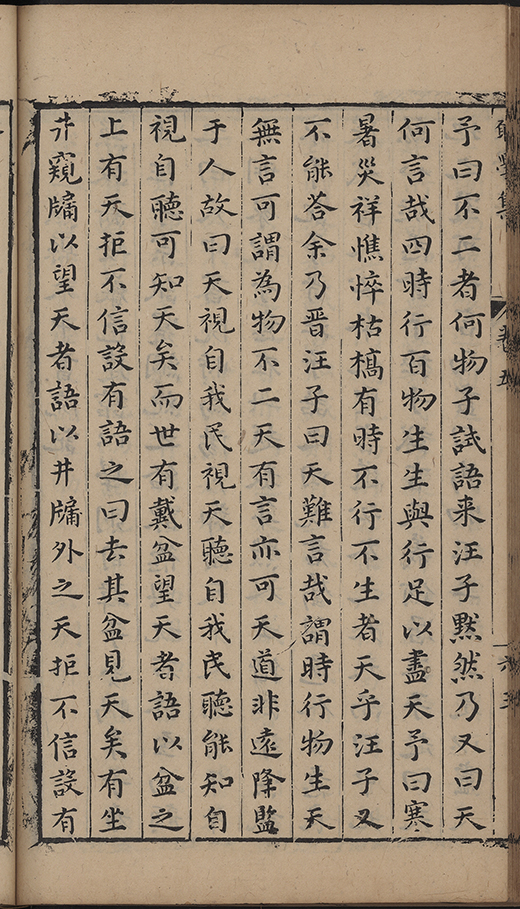 予曰不二者何物子試語来汪子黙然乃又曰天
何言哉四時行百物生生與行足以盡天予曰寒
暑災祥憔悴枯槁有時不行不生者天乎汪子又
不能荅余乃晋汪子曰天難言哉謂時行物生天
無言可謂為物不二天有言亦可天道非遠降監
于人故曰天視自我民視天聽自我民聽能知自
視自聽可知天矣而世有戴盆望天者語以盆之
上有天拒不信設有語之曰去其盆見天矣有坐
井窺牖以望天者語以井牖外之天拒不信設有